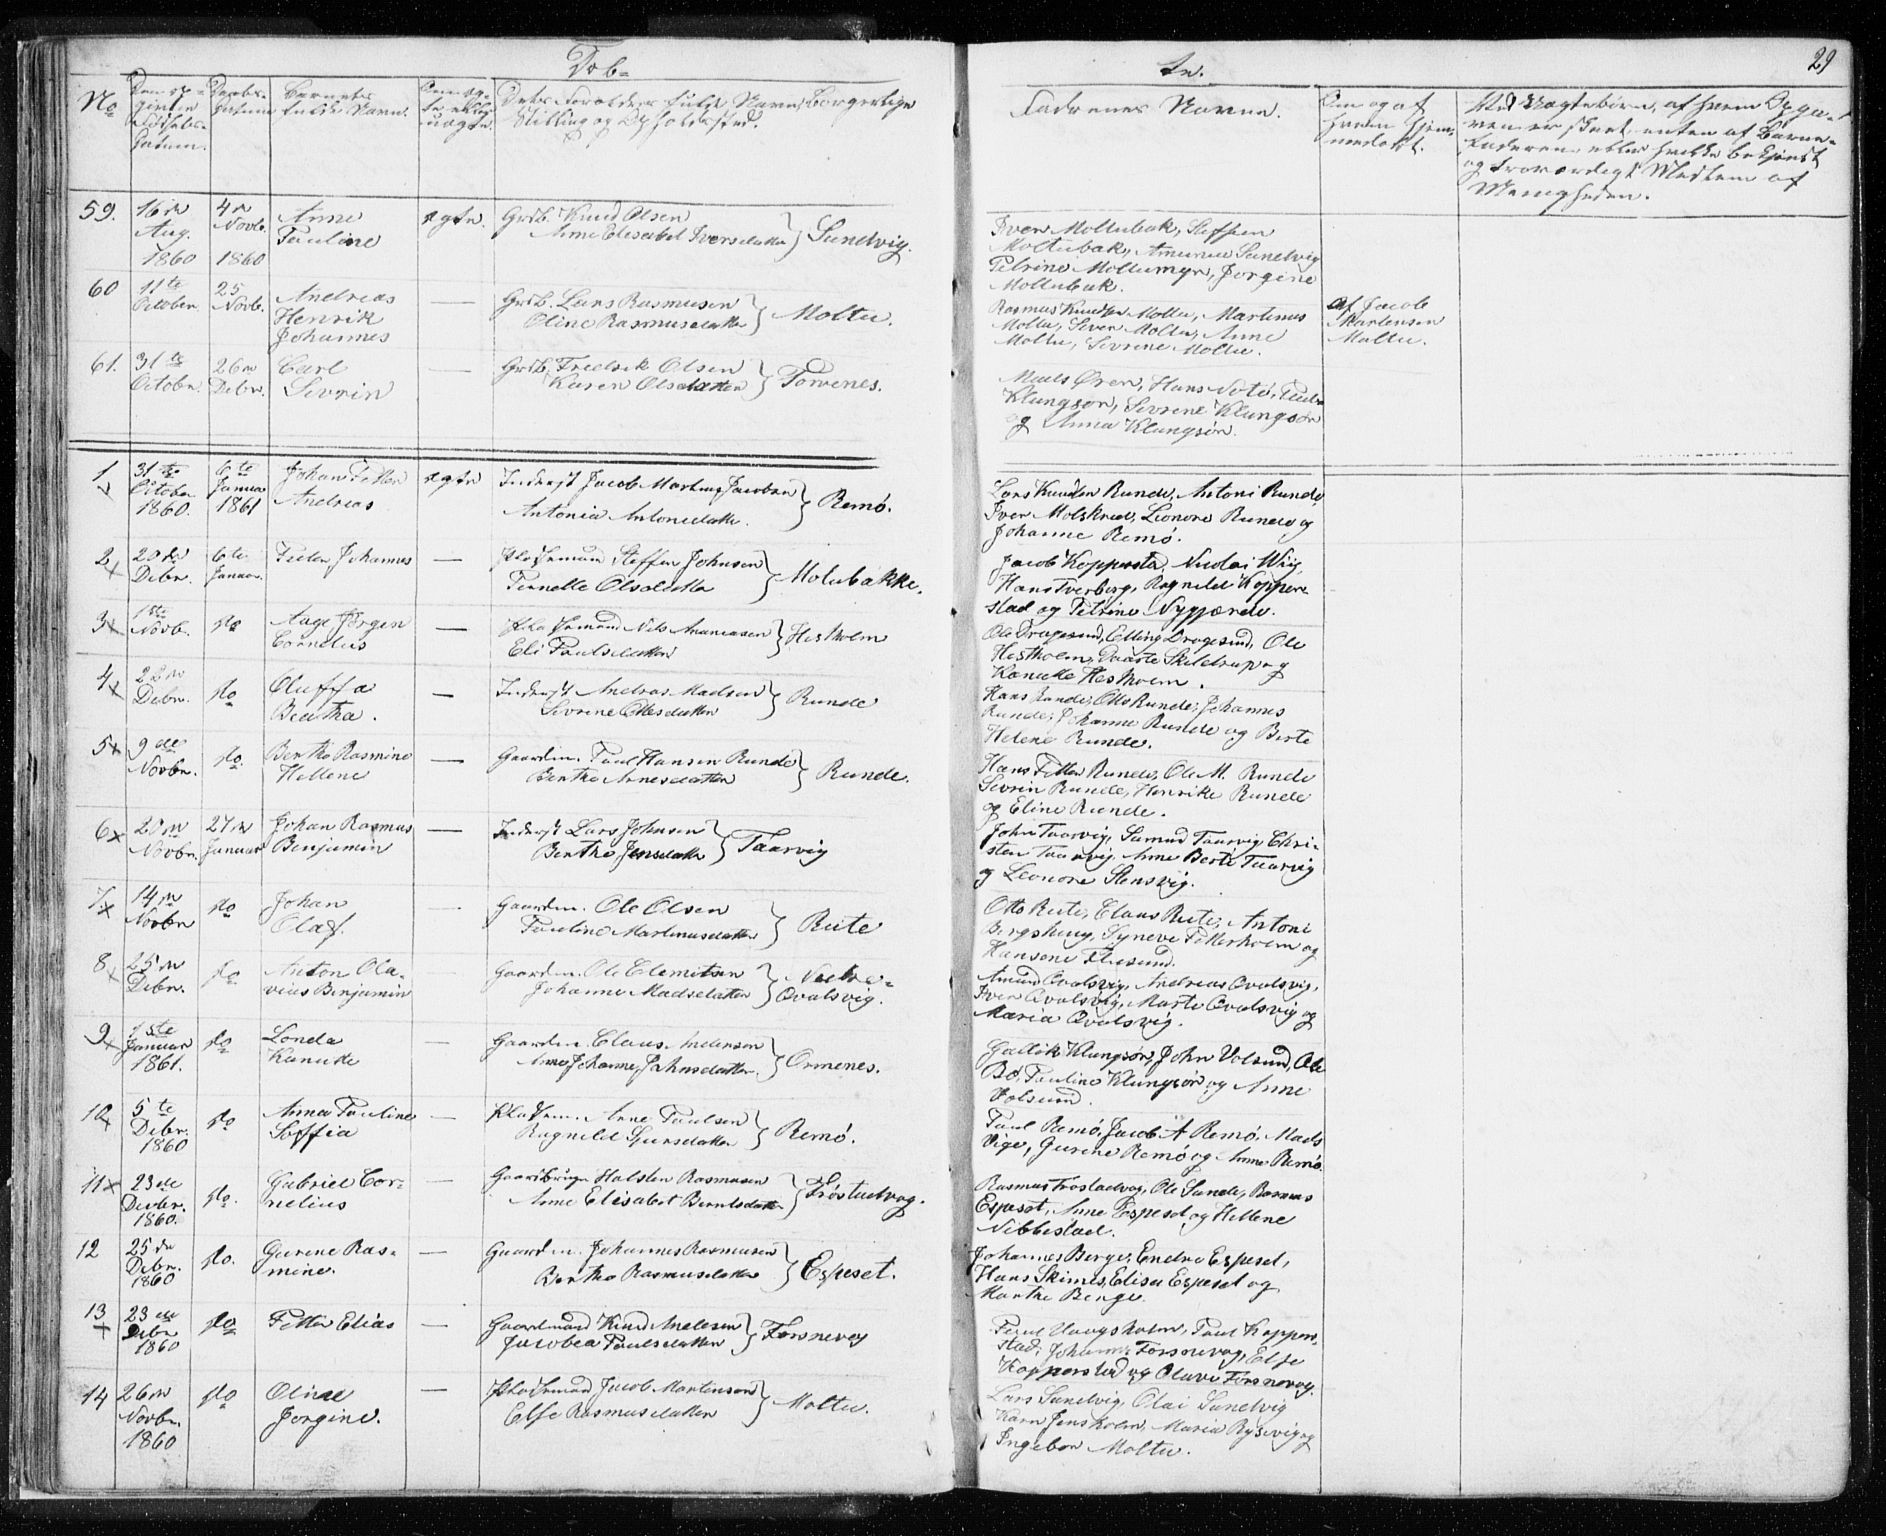 Døb=
te.
29
No
Den op=
givne
Fødsels=
Datum.
Daabs=
Datum
Barnets
fulde Navn.
Om æg=
te eller
uægte.
Dets Forældres fulde Navn, borgerlige
Stilling og Opholdssted.
Faddernes Navne.
Om og af
hvem hjem=
medøbt.
Ved Uægtebørn, af hvem Opga=
ven er skeet enten af Barne=
faderen eller hvilke bekjendt
og troværdigt Medlem af
Menigheden.
59.
16de Aug. 1860
4de Novb. 1860
Anne
Pauline
ægte.
Grdb. Knud Olsen
Anne Elisabet Iversdatter
Sundvig.
Iver Moltubak, Steffen
Moltubak, Amund Sundvig
Petrine Moltumyr, Jorgine
Moltubak.
60
11te October
25 Novb.
Andreas
Henrik
Johannes
Grdb. Lars Rasmusen
Oline Rasmusdatter
Moltu.
Rasmus Knudsen Moltu, Martinus
Moltu, Sever Moltu, Anne
Moltu, Sevrine Moltu.
Af Jacob
Martensen
Moltu.
61.
31te Octobr.
26de Debr.
Carl
Sevrin
Grdb. Fredrik Olsen
Karen Olsdatter
Torvenes.
Mads Øren, Hans Notø, Peder
Klungsør, Sevrine Klungsør
og Anna Klungsør.
1
31te October 1860.
6te Januar 1861
Johan Petter
Andreas
ægte
Inderst Jacob Martinus Jacobsen
Antonia Antonsdatter.
Remø.
Lars Knudsen Runde, Antoni Runde,
Iver Molskred, Leonore Runde og
Johanne Remø.
2
20de Debr.
6te Januar.
Peder Johannes
Pladsemand Steffen Johnsen
Pernelle Olsdatter
Moltubakke.
Jacob Kopperstad, Nicolai Wiig,
Hans Tverberg, Ragnild Kopper=
stad og Petrine Nygjærde.
3
1ste Novb.
do
Aage Jørgen
Cornelius
Pladsemand Nils Ananiasen
Eli Paulsdatter
Hestholm
Ole Dragesund, Elling Dragesund, Ole
Hestholm, Daarte Skeldrup og
Kanute Hestholm.
4
22de Debr.
do
Oluffa
Beatha.
Inderst Andreas Madsen
Sevrine Ottesdatter
Runde
Hans Runde, Otto Runde, Johannes
Runde, Johanne Runde og Berte
Helene Runde.
5
9de Novbr.
do.
Berthe Rasmine
Hellene
Gaardm. Paul Hansen Runde
Berthe Arnesdatter
Runde.
Hans Petter Runde, Ole M. Runde
Sevrin Runde, Henrike Runde
og Eline Runde.
6
20de Novbr.
27de Januar
Johan Rasmus
Benjamin
Inderst Lars Johnsen
Berthe Jensdatter
Taarvig
John Taarvig, Samund Taarvig, Chri=
sten Taarvig, Anne Berte Taarvig
og Leonore Stensvig.
7.
14de Novbr
do
Johan
Olaf.
Gaardm. Ole Olsen
Pauline Martinusdatter
Reite
Otto Reite, Claus Reite, Antoni
Bergshaug, Syneve Petterholm og
Hansene Flusund.
8
25de Debr.
do.
Anton Ola=
vius Benjamin
Gaardm. Ole Clemetsen
Johanne Madsdatter
Nedre=
Qvalsvig.
Amund Qvalsvig, Andreas Qvalsvig,
Iver Qvalsvig, Marte Qvalsvig og
Maria Qvalsvig.
9
1ste Januar 1861.
do
Londa
Kanute
Gaardm. Claus Andersen
Anne Johanne Johnsdatter.
Ormenes.
Gullik Klungsør, John Volsund, Ole
Bø, Pauline Klungsør og Anne
Volsund.
10
5te Debr. 1860
do
Anna Pauline
Soffia
Pladsem. Arne Paulsen
Ragnild Sjursdatter
Remø.
Paul Remø, Jacob A Remø, Mads
Vige, Gurine Remø og Anne Remø.
11
23de Decbr. 1860.
do.
Gabriel Cor=
nelius
Gaardbruger Halsten Rasmusen
Anne Elisabet Berntsdatter
Frøstadvag.
Rasmus Frøstadvag, Ole Sunde, Rasmus
Espeset, Anne Espeset og Hellene
Nibbestad.
12
25de Debr. 1860
do.
Gurine Ras=
mine.
Gaardm. Johannes Rasmusen
Berthe Rasmusdatter
Espeset.
Johannes Berge, Endre Espeset,
Hans Skinnes, Elisa Espeset og
Marthe Berge.
13
23de Debr 1860
do
Petter Elias
Gaardmand Knud Andersen
Jacobea Paulsdatter
Førsnevag
Peder Vaagsholm, Paul Koppers=
stad, Johanne Førsnevag, Else
Kopperstad og Olave Førsnevag.
14
26de Novbr. 1860
do
Oline
Jørgine.
Pladsemand Jacob Martinsen
Else Rasmusdatter
Moltu.
Lars Sundvig, Olai Sundvig
Karn Jensholm, Maria Rysevig og
Ingebor Moltu.